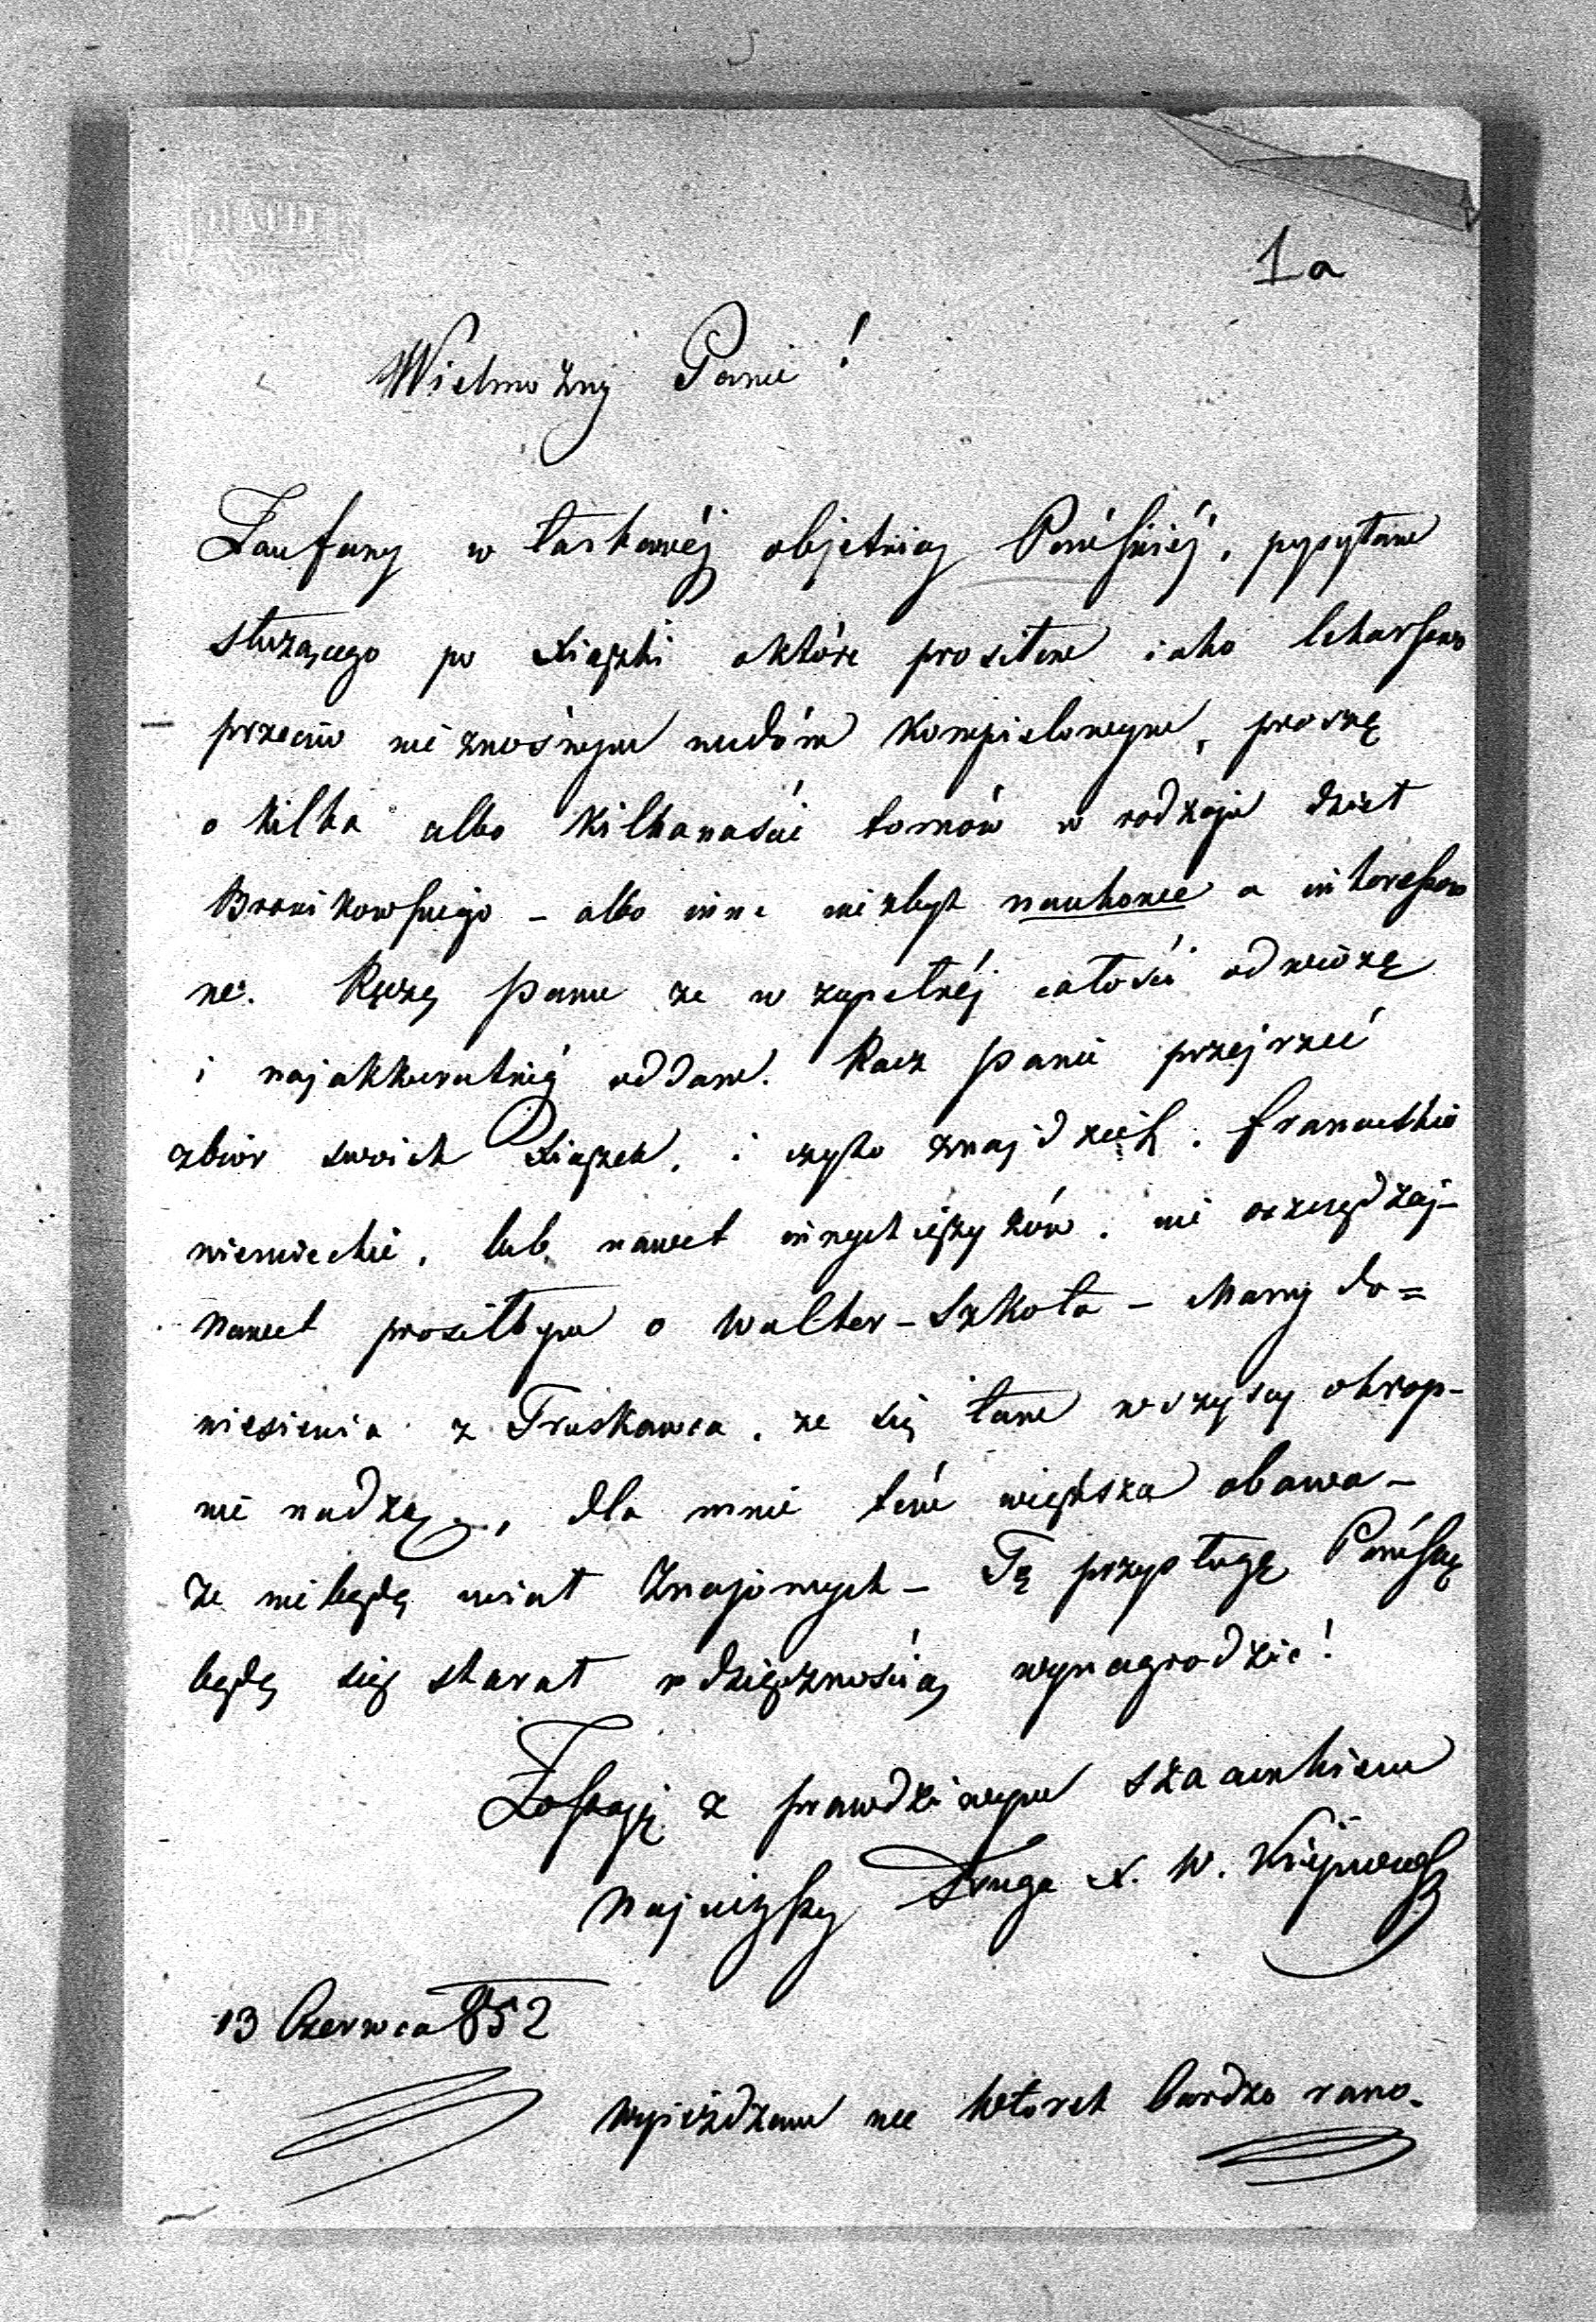 1a
Wielmożny Panie!
Zaufany w łaskawéj objetnicy Pańskiéj, posyłam
służącego po Xiążki o które prosiłem iako lekarstwo
przeciw nieznośnym nudóm kompielowym, proszę
o kilka albo kilkanaście tomów w rodzaju dzieł
Bronikowskiego – albo inne niezbyt naukowe a interesow
ne. Ręczę Panu ze w zupełnéj całości odwiozę
i najakkuratniéj oddam. Racz Panie przejrzeć
zbiór swoich Xiążek, i czyto znajdziesz francuskie
niemieckie, lub nawet innych ięzyków, nie oszczędzaj –
nawet prosiłbym o Walter-Szkota – Mamy do=
niesienia z Truskawca, ze się tam wszyscy okrop-
nie nudzą, dla mnie tém większa obawa –
ze niebędę miał Znajomych – Tę przysługę Pańską
będę się starał wdzięcznością wynagrodzić!
Zostaję z prawdziwym szacunkiem
Najniższy Sługa X. W.
13 Czerwca 852
Wyieżdzam we Wtorek bardzo rano.